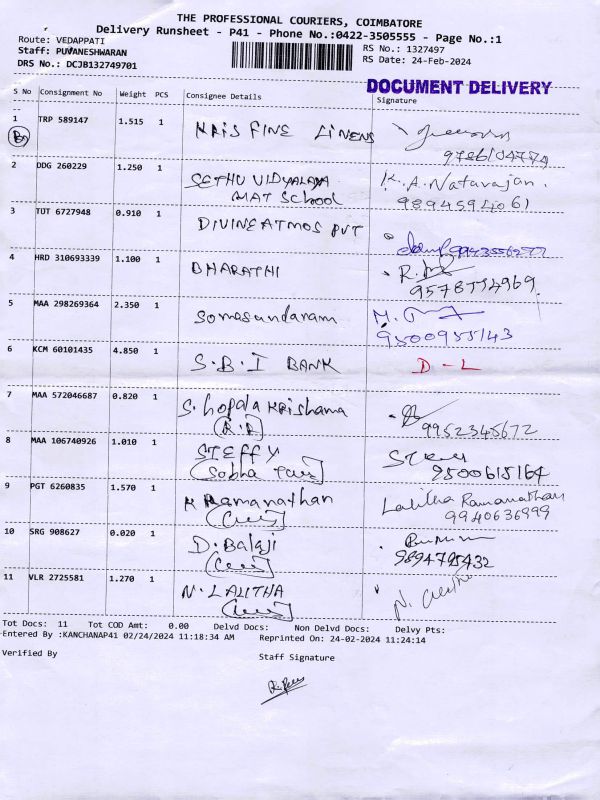 THE PROFESSIONAL COURIERS, COIMBATORE
Delivery Runsheet - P41 - Phone No.:0422-3505555 - Page No.:1
Route: VEDAPPATI
RS No.: 1327497
Staff: PUVANESHWARAN
RS Date: 24-Feb-2024
DRS No.: DCJB132749701
DOCUMENT DELIVERY
S No Consignment No Weight PCS Consignee Details Signature
1 TRP 589147 1.515 1 KRIS FINE LINENS
2 DDG 260229 1.250 1 SETHU VIDYALAYA K.A. Natarajan.
MAT School 9894594061
3 TUT 6727948 0.910 1 DIVINEATMOS PVT
4 HRD 310693339 1.100 1 BHARATHI
5 MAA 298269364 2.350 1 Somasundaram
9500955143
6 KCM 60101435 4.850 1 S.B.I BANK D - L
7 MAA 572046687 0.820 1 S.
9952345672
8 MAA 106740926 1.010 1 STEFFY
Sobha 9500615164
9 PGT 6260835 1.570 1 K Ramanathan Lalitha Ramanathan
9940636999
10 SRG 908627 0.020 1 D. Balaji
9894795432
11 VLR 2725581 1.270 1 N. LALITHA
Tot Docs: 11 Tot COD Amt: 0.00 Delvd Docs: Non Delvd Docs: Delvy Pts:
Entered By :KANCHANAP41 02/24/2024 11:18:34 AM Reprinted On: 24-02-2024 11:24:14
Verified By Staff Signature